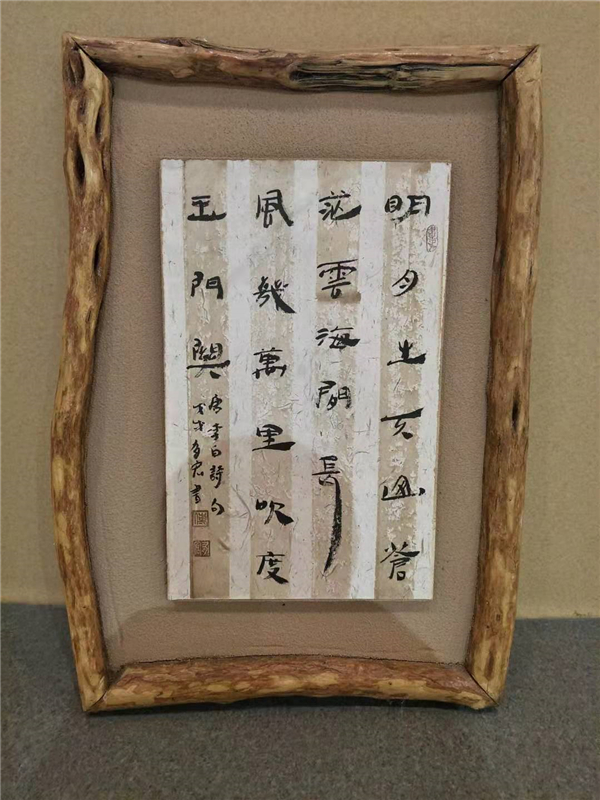 明月出天山蒼
茫雲海間長
風幾萬里吹度
玉門關
唐李白詩句
書